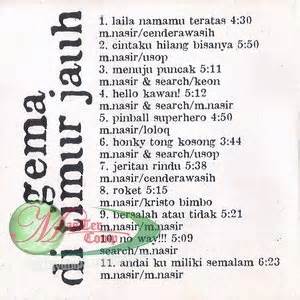 gema
di timur jauh
1. laila namamu teratas 4:30
m.nasir/cenderawasih
2. cintaku hilang bisanya 5:50
m.nasir/usop
3. menuju puncak 5:11
m.nasir & search/keon
4. hello kawan! 5:12
m.nasir & search/m.nasir
5. pinball superhero 4:50
m.nasir/loloq
6. honky tong kosong 3:44
m.nasir & search/usop
7. jeritan rindu 5:38
m.nasir/cenderawasih
8. roket 5:15
m.nasir/kristo bimbo
9. bersalah atau tidak 5:21
m.nasir/m.nasir
10. no way!!! 5:09
search/m.nasir
11. andai ku miliki semalam 6:23
m.nasir/m.nasir